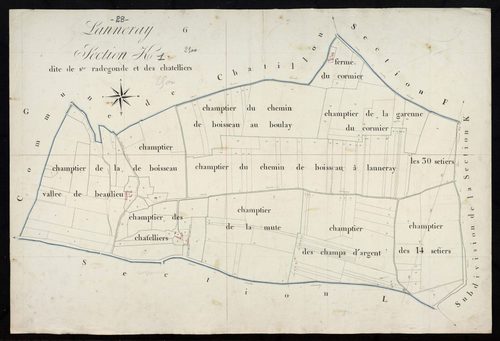 28
Lanneray
G
Section K 1
dite de s.te radegonde et des chatelliers
Commune de Chatillon
Section F
ferme
du cormier
champtier du chemin
de boisseau au boulay
champtier de la garenne
du cormier
champtier
de boisseau
champtier de la
vallee de beaulieu
champtier du chemin de boisseau à lanneray
les 30 setiers
champtier des
chatelliers
champtier
de la mute
champtier
des champs d'argent
champtier
des 14 setiers
Subdivision de la Section K
Section L